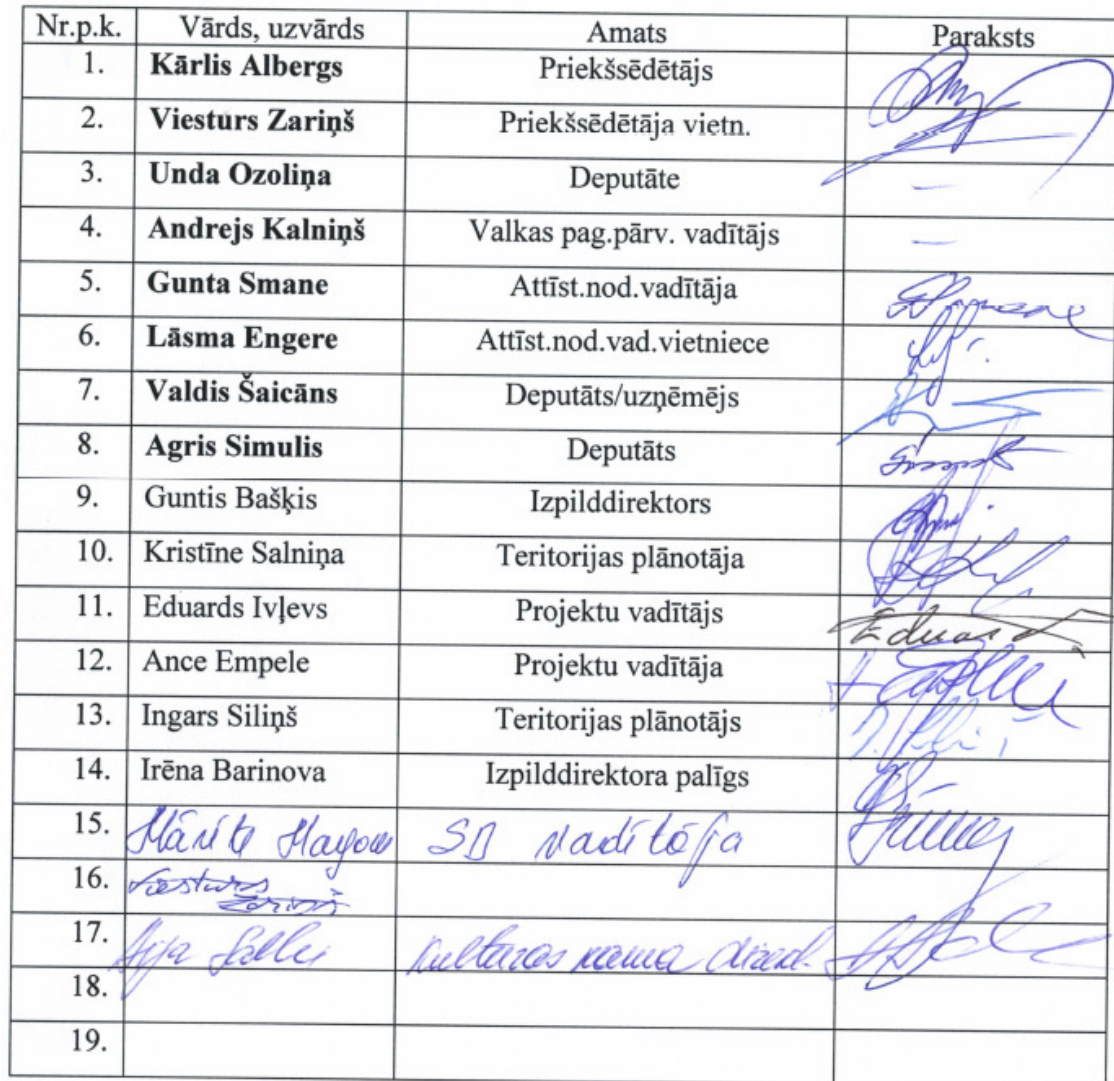 Nr.p.k. Vārds, uzvārds Amats Paraksts
1. Kārlis Albergs Priekšsēdētājs
2. Viesturs Zariņš Priekšsēdētāja vietn.
3. Unda Ozoliņa Deputāte –
4. Andrejs Kalniņš Valkas pag.pārv. vadītājs –
5. Gunta Smane Attīst.nod.vadītāja
6. Lāsma Engere Attīst.nod.vad.vietniece
7. Valdis Šaicāns Deputāts/uzņēmējs
8. Agris Simulis Deputāts
9. Guntis Bašķis Izpilddirektors
10. Kristīne Salniņa Teritorijas plānotāja
11. Eduards Ivļevs Projektu vadītājs
12. Ance Empele Projektu vadītāja
13. Ingars Siliņš Teritorijas plānotājs
14. Irēna Barinova Izpilddirektora palīgs
15. vadītāja
16. Viesturs
Zariņš
17. Kultūras nama
18.
19.